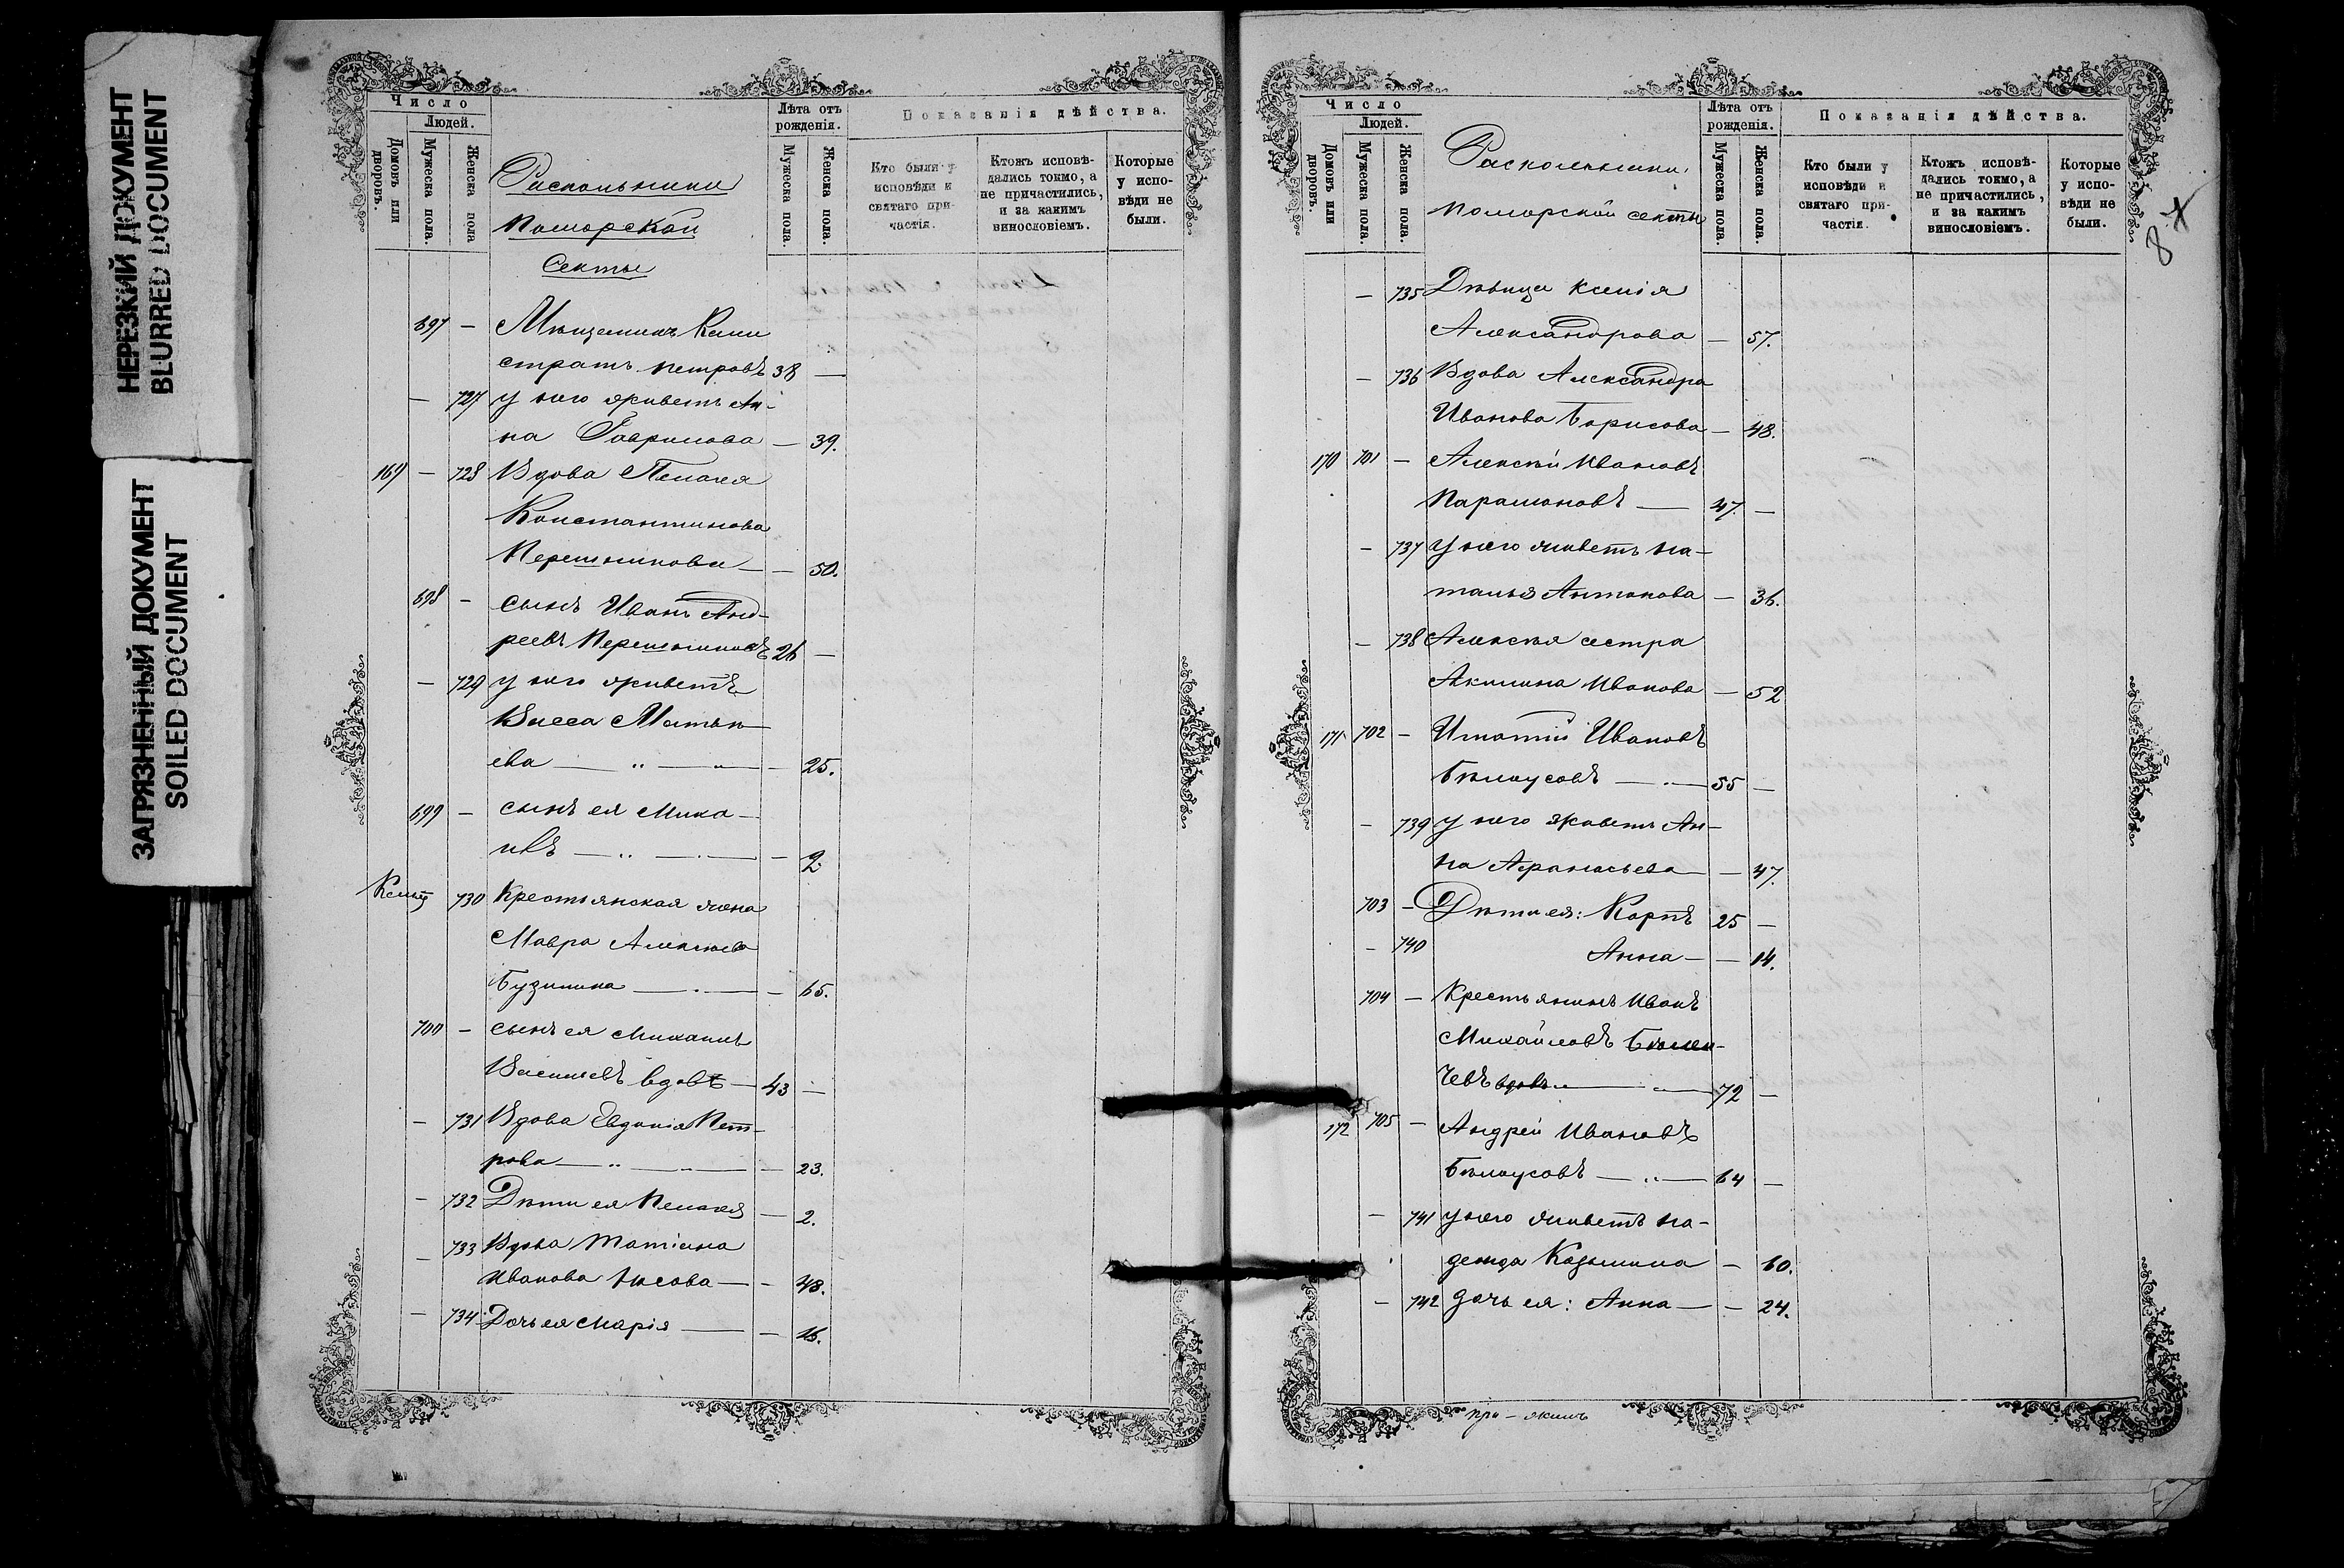 НЕРЕЗКИЙ ДОКУМЕНТ
BLURRED DOCUMENT
ЗАГРЯЗНЕННЫЙ ДОКУМЕНТ
SOILED DOCUMENT
Число
Людей.
Домовъ или дворовъ.
Мужеска пола.
Женска пола
Раскольники
Поморской
Секты
Лѣта отъ рожденія.
Мужеска пола.
Женска пола.
Показанія дѣйства.
Кто были у исповѣди и святаго причастія.
Ктожъ исповѣдались токмо, а не причастились, и за какимъ винословіемъ.
Которые у исповѣди не были.
697 — Мѣщанинъ
стратъ Петровъ 38 —
— 727 у него живетъ Ан-
на Гаврилова — 39.
169 — 728 Вдова Пелагея
Константинова
— — 50.
698 — сынъ Иванъ Анд-
реевъ 26 —
— 729 у него живетъ
Васса Матвѣ-
ева — „ — „ — — 25.
699 — сынъ ея Миха-
илъ — „ — — 2.
730 Крестьянская жена
Мавра Алексѣева
Бузинина — — 65.
700 — сынъ ея Михаилъ
Васильевъ вдовъ — 43 —
— 731 Вдова Евдокія Пет-
рова — „ — „ — — 23.
— 732 Дѣти ея Пелагея — 2.
— 733 Вдова Татіана
Иванова — — 48.
— 734 Дочь ея Марія — — 16.
Число
Людей.
Домовъ или дворовъ.
Мужеска пола.
Женска пола.
Раскольники
Поморской секты
Лѣта отъ рожденія.
Мужеска пола.
Женска пола.
Показанія дѣйства.
Кто были у исповѣди и святаго причастія.
Ктожъ исповѣдались токмо, а не причастились, и за какимъ винословіемъ.
Которые у исповѣди не были.
— 735 Дѣвица Ксенія
Александрова — 57.
— 736 Вдова Александра
Иванова Борисова — 48.
170 701 — Алексѣй Ивановъ
Парамоновъ — 47. —
— 737 У него живетъ На-
талья Антонова — 36.
— 738 Алексѣя сестра
Акилина Иванова — 52
171 702 — Игнатій Ивановъ
Бѣлоусовъ — „ — 55 —
— 739 У него живетъ Ан-
на Афанасьева — — 47.
703 — Дѣти ея: Карпъ 25 —
— 740 Анна — — 14.
704 — Крестьянинъ Иванъ
Михайловъ
чевъ вдовъ — „ — 72 —
172 705 — Андрей Ивановъ
Бѣлоусовъ — „ — 64 —
— 741 у него живетъ На-
дежда Козьмина — 60.
— 742 дочь ея: Анна — — 24.